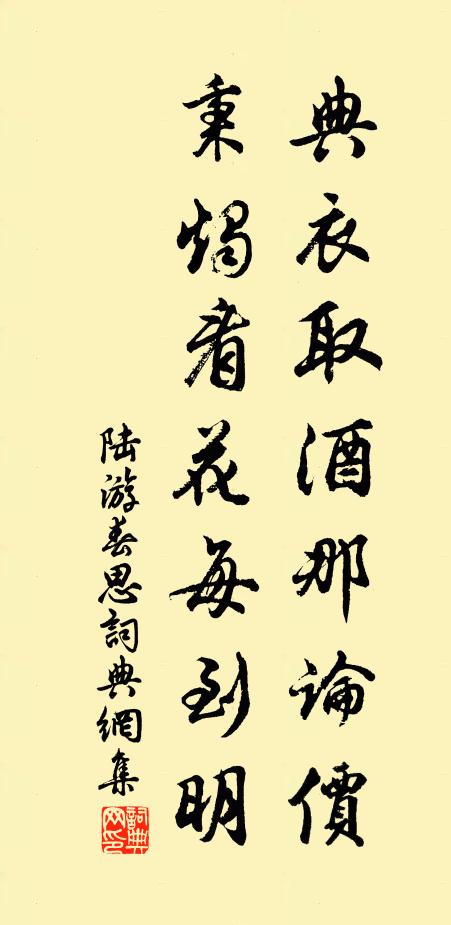 典衣取酒那論價
秉燭看花每到明
陆游春思詞典網集
詞典网印